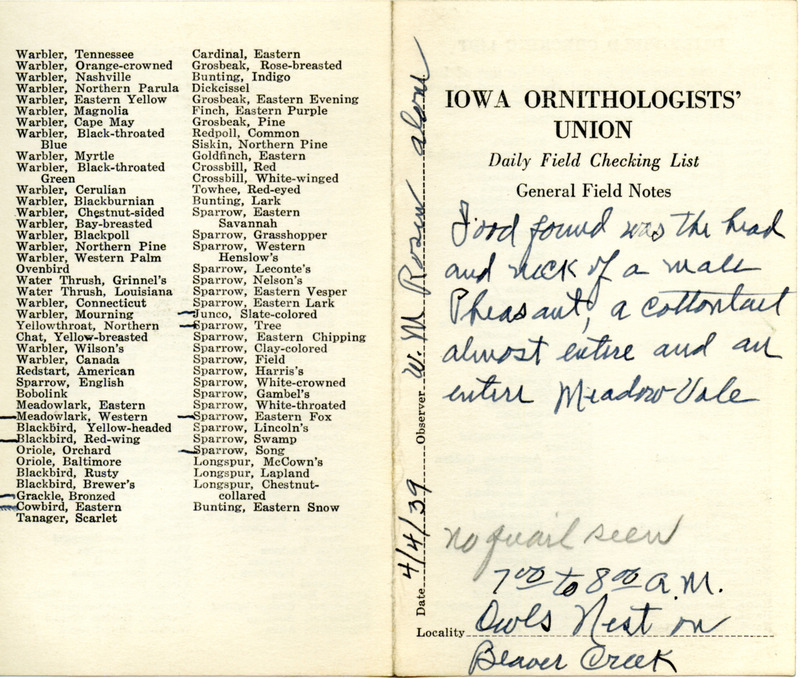 Warbler, Tennessee
Warbler, Orange-crowned
Warbler, Nashville
Warbler, Northern Parula
Warbler, Eastern Yellow
Warbler, Magnolia
Warbler, Cape May
Warbler, Black-throated
Blue
Warbler, Myrtle
Warbler, Black-throated
Green
Warbler, Cerulian
Warbler, Blackburnian
Warbler, Chestnut-sided
Warbler, Bay-breasted
Warbler, Blackpoll
Warbler, Northern Pine
Warbler, Western Palm
Ovenbird
Water Thrush, Grinnel's
Water Thrush, Louisiana
Warbler, Connecticut
Warbler, Mourning
Yellowthroat, Northern
Chat, Yellow-breasted
Warbler, Wilson's
Warbler, Canada
Redstart, American
Sparrow, English
Bobolink
Meadowlark, Eastern
Meadowlark, Western
Blackbird, Yellow-headed
Blackbird, Red-wing
Oriole, Orchard
Oriole, Baltimore
Blackbird, Rusty
Blackbird, Brewer's
Grackle, Bronzed
Cowbird, Eastern
Tanager, Scarlet
Cardinal, Eastern
Grosbeak, Rose-breasted
Bunting, Indigo
Dickcissel
Grosbeak, Eastern Evening
Finch, Eastern Purple
Grosbeak, Pine
Redpoll, Common
Siskin, Northern Pine
Goldfinch, Eastern
Crossbill, Red
Crossbill, White-winged
Towhee, Red-eyed
Bunting, Lark
Sparrow, Eastern
Savannah
Sparrow, Grasshopper
Sparrow, Western
Henslow's
Sparrow, Leconte's
Sparrow, Nelson's
Sparrow, Eastern Vesper
Sparrow, Eastern Lark
Junco, Slate-colored
Sparrow, Tree
Sparrow, Eastern Chipping
Sparrow, Clay-colored
Sparrow, Field
Sparrow, Harris's
Sparrow, White-crowned
Sparrow, Gambel's
Sparrow, White-throated
Sparrow, Eastern Fox
Sparrow, Lincoln's
Sparrow, Swamp
Sparrow, Song
Longspur, McCown's
Longspur, Lapland
Longspur, Chestnut-
collared
Bunting, Eastern Snow
Date 4/4/39 Observer W. M. Rosen alone
IOWA ORNITHOLOGISTS'
UNION
Daily Field Checking List
General Field Notes
Food found was the head
and neck of a male
Pheasant, a cottontail
almost entire and an
entire Meadow Vole
no quail seen
7:00 to 8:00 A.M.
Locality Owls Nest on
Beaver Creek